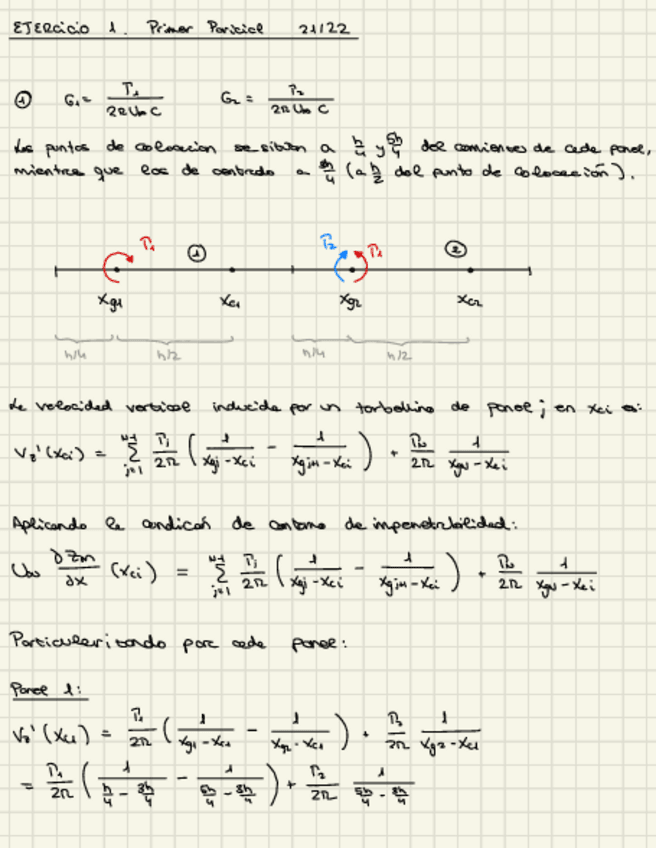 EJERCICIO 1. Primer Parcial 21/22
① G₁ = Γ₁ / (2π U∞ C) G₂ = Γ₂ / (2π U∞ C)
Los puntos de colocacion se sitúan a h/4 y 5h/4 del comienzo de cada panel,
mientras que los de control a 3h/4 (a h/2 del punto de colocación).
Γ₁ ① Γ₂ Γ₁ ②
xg1 xc1 xg2 xc2
h/4 h/2 h/4 h/2
La velocidad vertical inducida por un torbellino de panel j en xci es:
Vz'(xci) = Σ_{j=1}^{N-1} Γj/2π ( 1/(xgj - xci) - 1/(xgj+1 - xci) ) + ΓN/2π 1/(xgN - xci)
Aplicando la condición de contorno de impenetrabilidad:
U∞ ∂Zm/∂x (xci) = Σ_{j=1}^{N-1} Γj/2π ( 1/(xgj - xci) - 1/(xgj+1 - xci) ) + ΓN/2π 1/(xgN - xci)
Particularizando para cada panel:
Panel 1:
Vz'(xc1) = Γ₁/2π ( 1/(xg1 - xc1) - 1/(xg2 - xc1) ) + Γ₂/2π 1/(xg2 - xc1)
= Γ₁/2π ( 1/(h/4 - 3h/4) - 1/(5h/4 - 3h/4) ) + Γ₂/2π 1/(5h/4 - 3h/4)